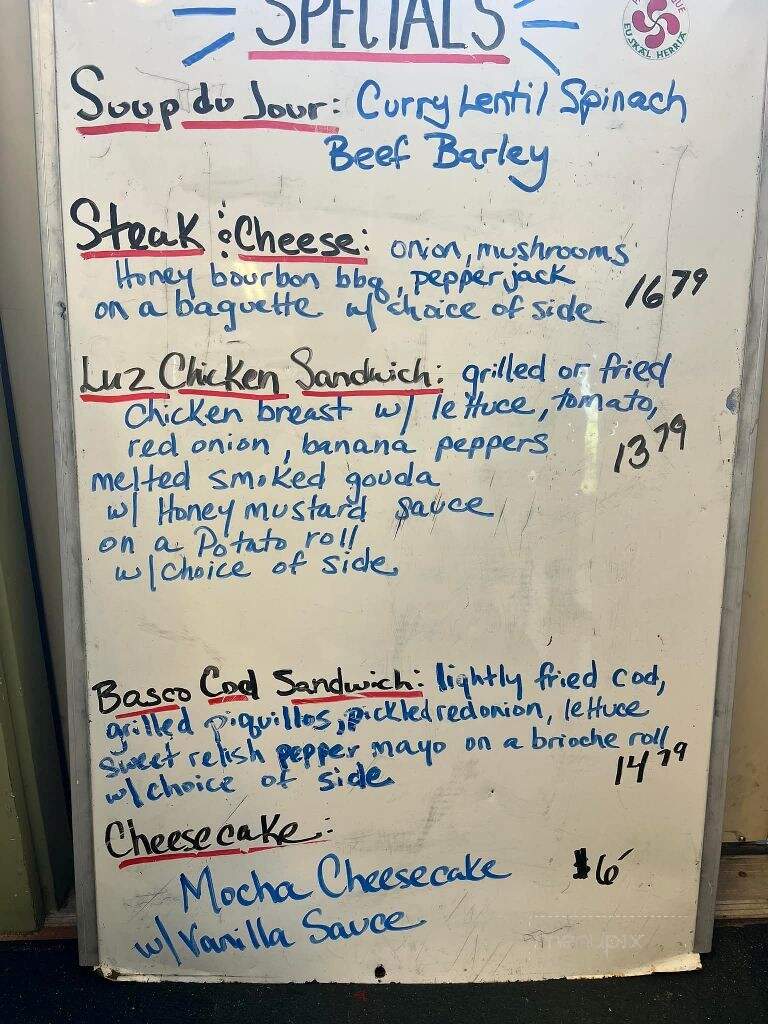 SPECIALS
EUSKAL HERRIA
Soup du Jour: Curry Lentil Spinach
Beef Barley
Steak & Cheese: onion, mushrooms
Honey bourbon bbq, pepperjack
on a baguette w/ choice of side 16 79
Luz Chicken Sandwich: grilled or fried
chicken breast w/ lettuce, tomato,
red onion, banana peppers 13 79
melted smoked gouda
w/ Honey mustard sauce
on a Potato roll
w/ choice of side
Basco Cod Sandwich: lightly fried cod,
grilled piquillos, pickled red onion, lettuce
sweet relish pepper mayo on a brioche roll
w/ choice of side 14 79
Cheesecake:
Mocha Cheesecake $6
w/ Vanilla Sauce
menupix